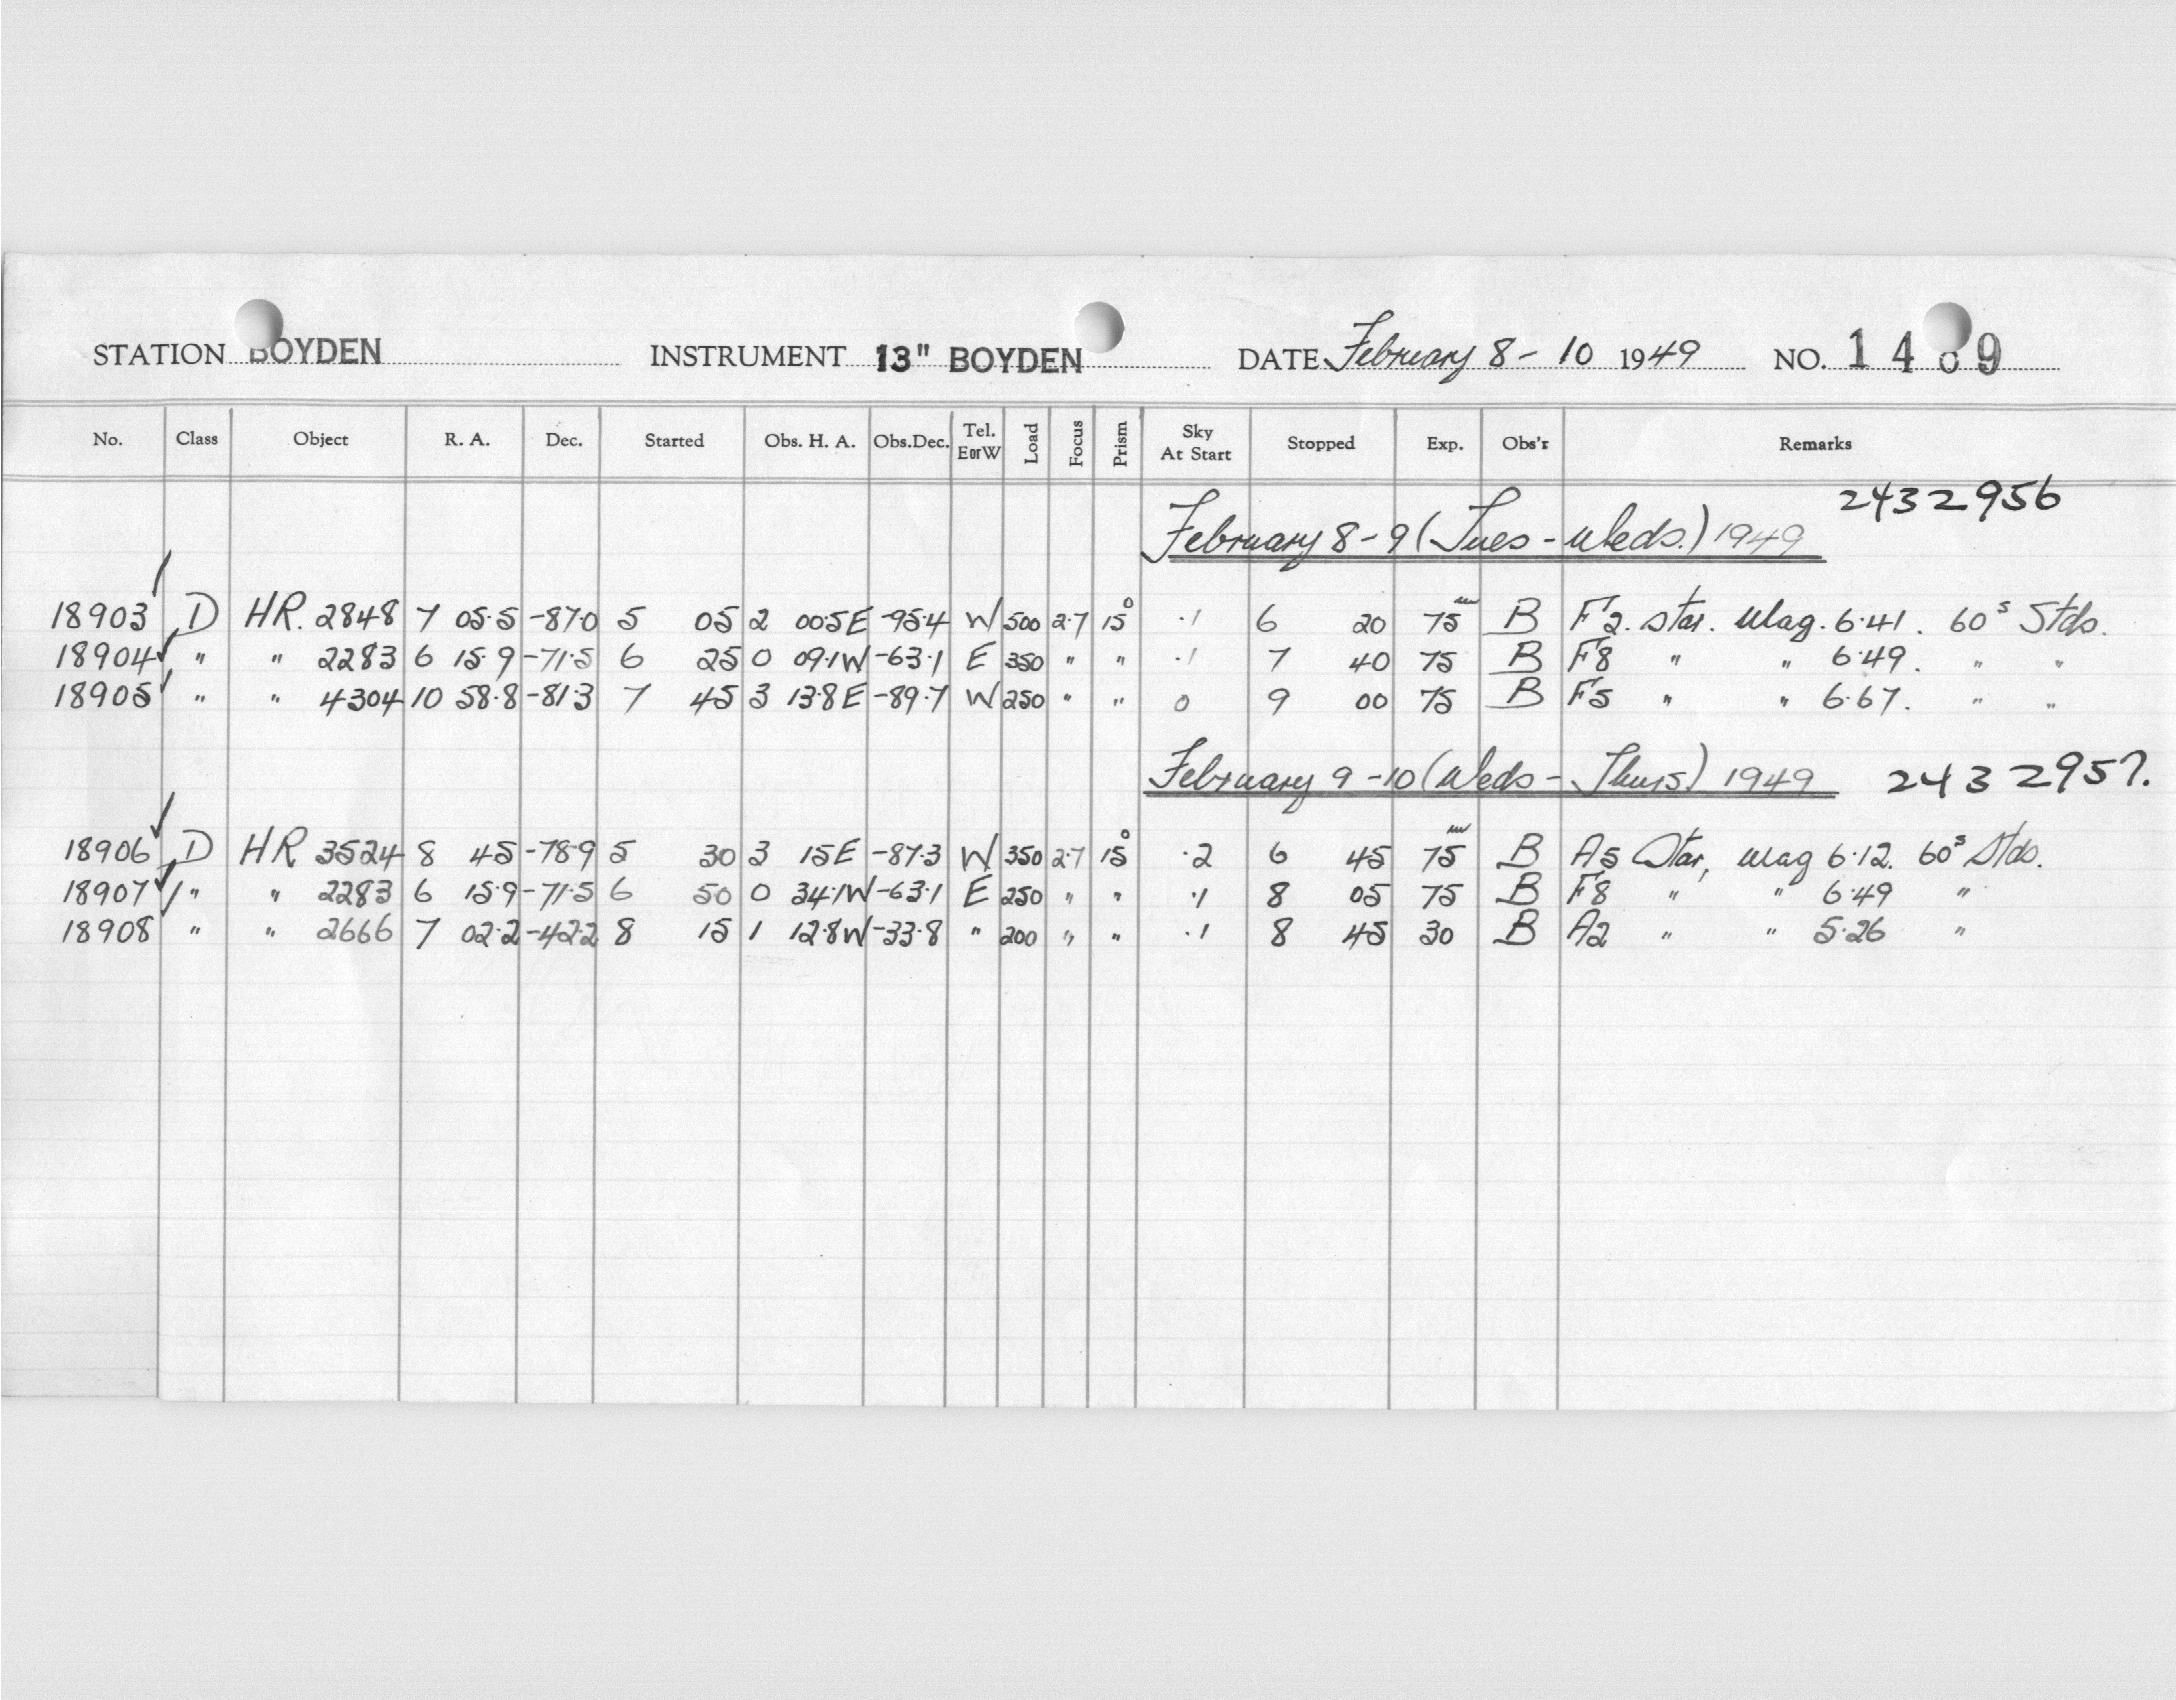 STATION BOYDEN INSTRUMENT 13" BOYDEN DATE February 8 - 10 1949 NO. 1489
No. Class Object R. A. Dec. Started Obs. H. A. Obs.Dec. Tel. EorW Load Focus Prism Sky At Start Stopped Exp. Obs'r Remarks
2432956
February 8-9 (Tues - Weds.) 1949
18903 D HR. 2848 7 05.5 -87.0 5 05 2 00.5E -95.4 W 500 2.7 15° .1 6 20 75m B F2. star. Mag. 6.41. 60s Stds.
18904 " " 2283 6 15.9 -71.5 6 25 0 09.1W -63.1 E 350 " " .1 7 40 75 B F8 " " 6.49. " "
18905 " " 4304 10 58.8 -81.3 7 45 3 13.8E -89.7 W 250 " " 0 9 00 75 B F5 " " 6.67. " "
February 9-10 (Weds - Thurs) 1949 2432957.
18906 D HR 3524 8 45 -78.9 5 30 3 15E -87.3 W 350 2.7 15° .2 6 45 75m B A5 Star, Mag 6.12. 60s Stds.
18907 " " 2283 6 15.9 -71.5 6 50 0 34.1W -63.1 E 250 " " .1 8 05 75 B F8 " " 6.49 "
18908 " " 2666 7 02.2 -42.2 8 15 1 12.8W -33.8 " 200 " " .1 8 45 30 B A2 " " 5.26 "